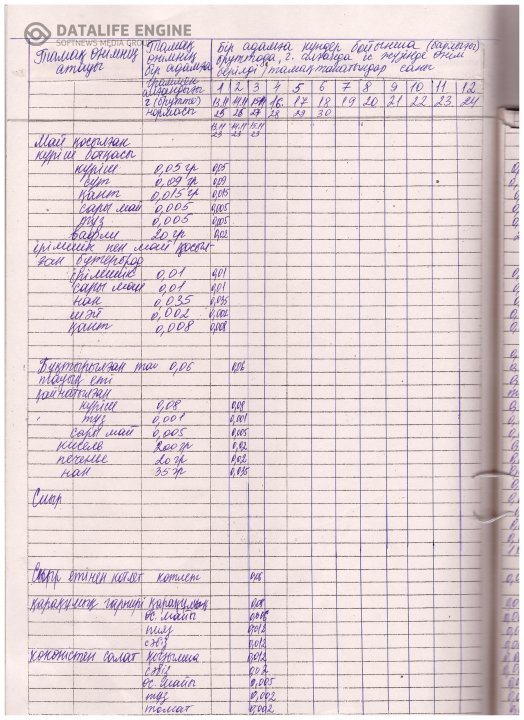 DATALIFE ENGINE
SOFTNEWS MEDIA GROUP
Тамақ өнімнің атауы
Тамақ өнімнің бір адамға граммен алғандағы г (брутто) нормасы
Бір адамға күндер бойынша (барлығы)
бруттода, г. алғанда
берілді тамақтанатындар саны
1 2 3 4 5 6 7 8 9 10 11 12
13.11 14.11 15.11 16 17 18 19 20 21 22 23 24
25 26 27 28 29 30
13.11 14.11 15.11
23 23 23
Май қосылған
күріш ботқасы
күріш 0,05 гр 0,05
сүт 0,09 гр 0,09
қант 0,015 гр 0,015
сары май 0,005 0,005
тұз 0,005 0,005
вафли 20 гр 0,02
ірімшік пен май қосыл-
ған бутерброд
ірімшік 0,01 0,01
сары май 0,01 0,01
нан 0,035 0,035
шәй 0,002 0,002
қант 0,008 0,008
Бұқтырылған 0,06 0,06
тауық еті
қайнатылған
күріш 0,08 0,08
тұз 0,001 0,001
сары май 0,005 0,005
кисель 200гр 0,02
печенье 20 гр 0,02
нан 35 гр 0,035
Сиыр
Сиыр етінен котлет котлет 0,06
қарақұмық гарнирі қарақұмық 0,08
өс. майы
пияз 0,012
сәбіз 0,012
көкөністен салат 0,012
сәбіз
өс. майы 0,005
тұз 0,002
томат 0,002